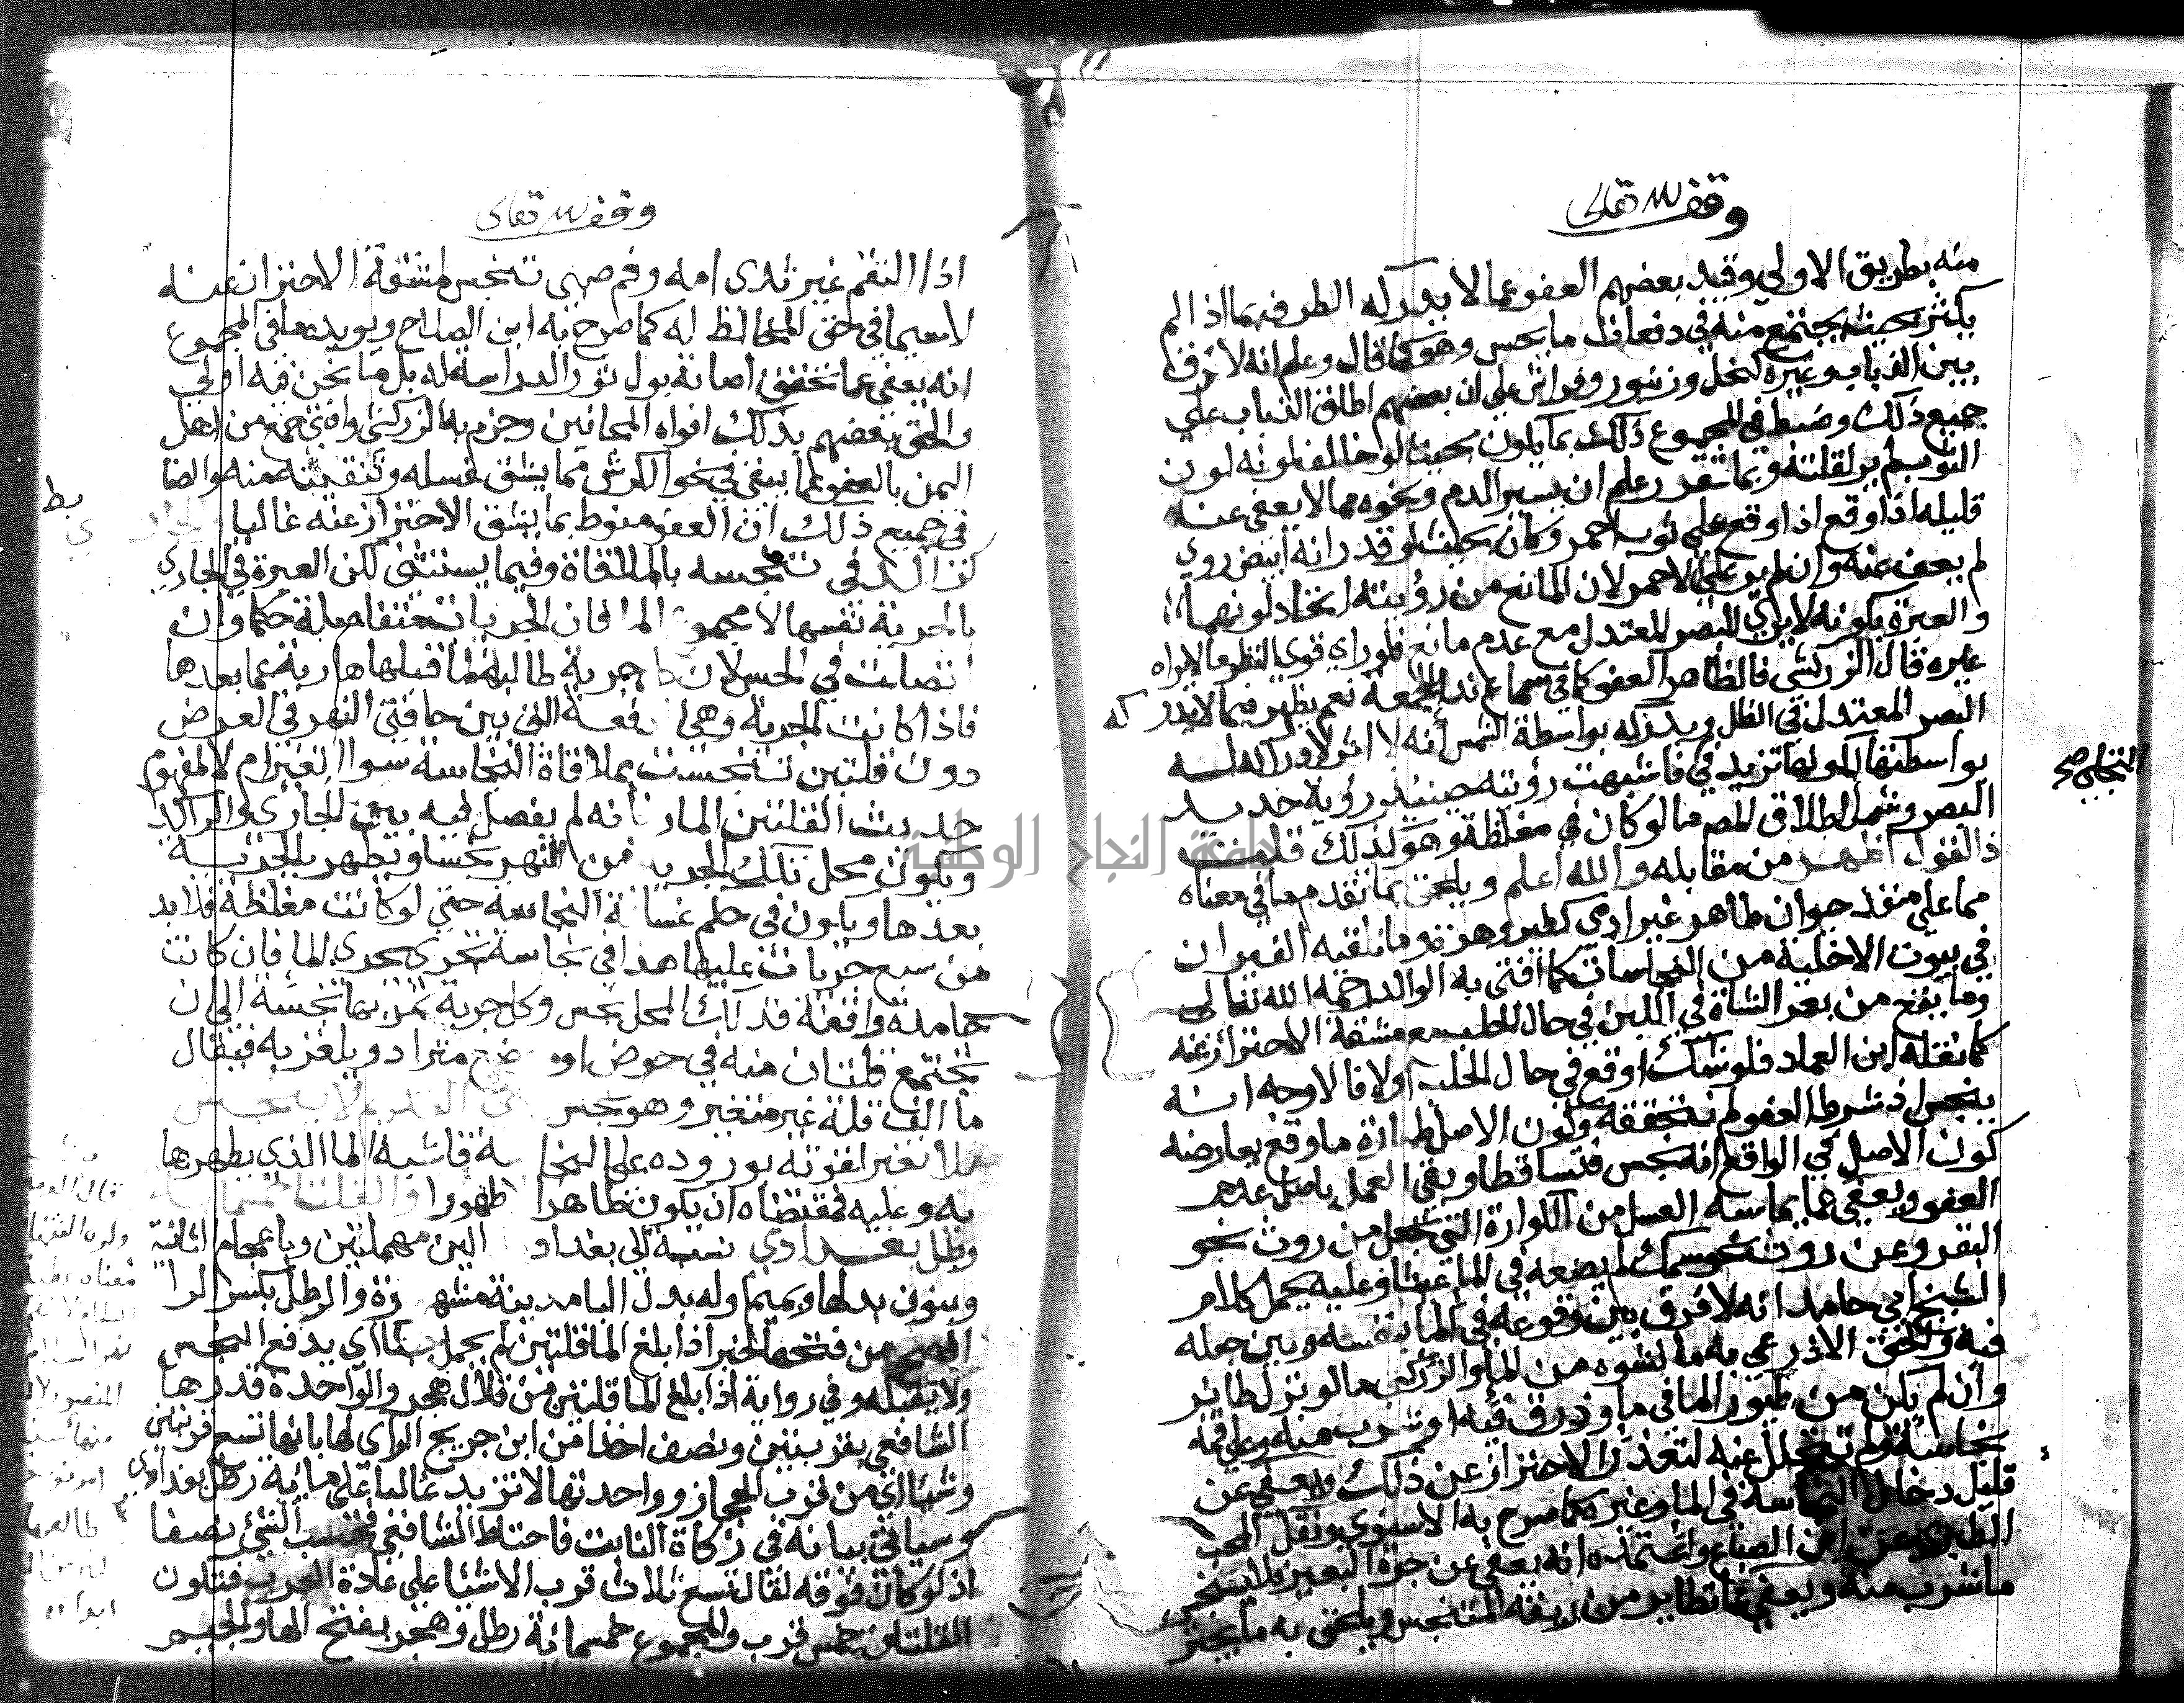 وقف لله تعالى
منه بطريق الاولي وقيد بعضهم العفو عما لا يدركه الطرف بما اذا لم
يكثر بحيث يجتمع منه في دفعات ما يحس وهو كما قال وعلم انه لا فرق
بين الذباب وغيره كنحل وزنبور وفراش علي ان بعضهم اطلق الذباب علي
جميع ذلك وضبط في المجموع ذلك بما يكون بحيث لو خالف لونه لون
الثوب لم ير لقلته وبما تقرر علم ان يسير الدم ونحوه مما لا يعفي عنه
قليله اذا وقع اذا وقع علي ثوب احمر وكان بحيث لو قدر انه ابيض روي
لم يعف عنه وان لم ير علي الاحمر لان المانع من رؤيته اتحاد لونهما
والعبرة بكونه لا يري للبصر المعتدل مع عدم مانع فلو راي قوي النظر ما لا يراه
غيره قال الزركشي فالظاهر العفو كما في سماع ندا الجمعة نعم يظهر فيما لا يدر كه
البصر المعتدل في الظل ويدركه بواسطة الشمس أنه لا اثر لادراكه له
بواسطتها لكونها تزيد في فاشبهت رؤيته حينئذ رؤية حديد
التجلي صح
البصر وشمل اطلاق المص ما لو كان في مغلظة وهو كذلك
ذا القول اظهر من مقابله والله اعلم ويلحق بما تقدم ما في معناه
مما علي منفذ حيوان طاهر غير ادمي كطير وهرة وما تلقيه الفيران
في بيوت الاخلية من النجاسات كما افتي به الوالد رحمه الله تعالى
وما يقع من بعر الشاة في اللبن في حال الحلب مع مشقة الاحتراز عنه
كما نقله ابن العماد فلو شك اوقع في حال الحلب أولا فالاوجه انه
ينجس اذ شرط العفو لم نتحققه وكون الاصل طهارة ما وقع يعارضه
كون الاصل في الواقع انه نجس فتساقطا وبقي العمل باصل عدم
العفو ويعفي عما يماسه العسل من الكوارة التي تجعل من روث نحو
البقر وعن روث نحو سمك لم يضعه في الما عبثا وعليه يحمل كلام
الشيخ ابي حامد انه لا فرق بين وقوعه في الما بنفسه وبين جعله
فيه والحق الاذرعي به ما نشوه من الما والزركشي ما لو نزل طائر
وان لم يكن من طيور الما في ما وذرق فيه او شرب منه وعلي فمه
نجاسة ولم تتحلل عنه لتعذر الاحتراز عن ذلك ويعفي عن
قليل دخان النجاسة في الما وغيره كما صرح به الاسنوي ونقل المحب
الطبري عن ابن الصباغ واعتمده انه يعفي عن جرة البعير فلا ينجس
ما شرب منه ويعفي عما تطاير من ريقه المتنجس ويلحق به ما يجتر
وقف لله تعالى
اذا التقم غير ثدي امه وفم صبي تنجس لمشقة الاحتراز عنه
لاسيما في حق المخالط له كما صرح به ابن الصلاح ويويده ما في المجموع
انه يعفي عما تحقق اصابة بول ثور الدراسة له بل ما نحن فيه اولي
والحق بعضهم بذلك افواه المجانين وجزم به الزركشي وافتي جمع من اهل
اليمن بالعفو لما يبقي في نحو الكرش مما يشق غسله وتنقيته منه والضا
بط
في جميع ذلك ان العفو منوط بما يشق الاحتراز عنه غالبا
كراكد في تنجسه بالملاقاة وفيما يستثني لكن العبرة في الجاري
بالجرية نفسها لا مجموع الما فان الجريات متفاصلة حكما وان
اتصلت في الحس لان كل جرية طالبة لما قبلها هاربة عما بعدها
فاذا كانت الجرية وهي الدفعة التي بين حافتي النهر في العرض
دون قلتين تنجست بملاقاة النجاسة سوا اتغير ام لا لمفهوم
حديث القلتين المار فانه لم يفصل فيه بين الجاري والراكد
ويكون محل تلك الجرية من النهر نجسا ويطهر بالجرية
بعدها ويكون في حكم غسالة النجاسة حتي لو كانت مغلظة فلا بد
من سبع جريات عليها هذا في نجاسة تجري بجري الما فان كانت
جامدة واقفة فذلك المحل نجس وكل جرية تمر بها نجسة الي ان
تجتمع قلتان منه في حوض او موضع متراد ويلغز به فيقال
ما الف قلة غير متغير وهو نجس
به وعليه فمقتضاه ان يكون طاهرا طهورا والقلتان خمسماية
رطل بغدادي نسبة الي بغداد بدالين مهملتين وباعجام الثانية
وبنون بدلها وبميم اوله بدل البا مدينة مشهورة والرطل بكسر الرا
افصح من فتحها لخبر اذا بلغ الما قلتين لم يحمل خبثا اي يدفع النجس
ولا يقبله وفي رواية اذا بلغ الما قلتين من قلال هجر والواحدة قدرها
الشافعي بقربتين ونصف اخذا من ابن جريج الراي لها بانها تسع قربتين
وشيا اي من قرب الحجاز وواحدتها لا تزيد غالبا علي ماية رطل بغدادي
وسياتي بيانه في زكاة النابت فاحتاط الشافعي فحسب الشئ نصفا
اذ لو كان فوقه لقال تسع ثلاث قرب الا شيا علي عادة العرب فتكون
القلتان خمس قرب والمجموع خمسماية رطل وهجر بفتح الها والجيم